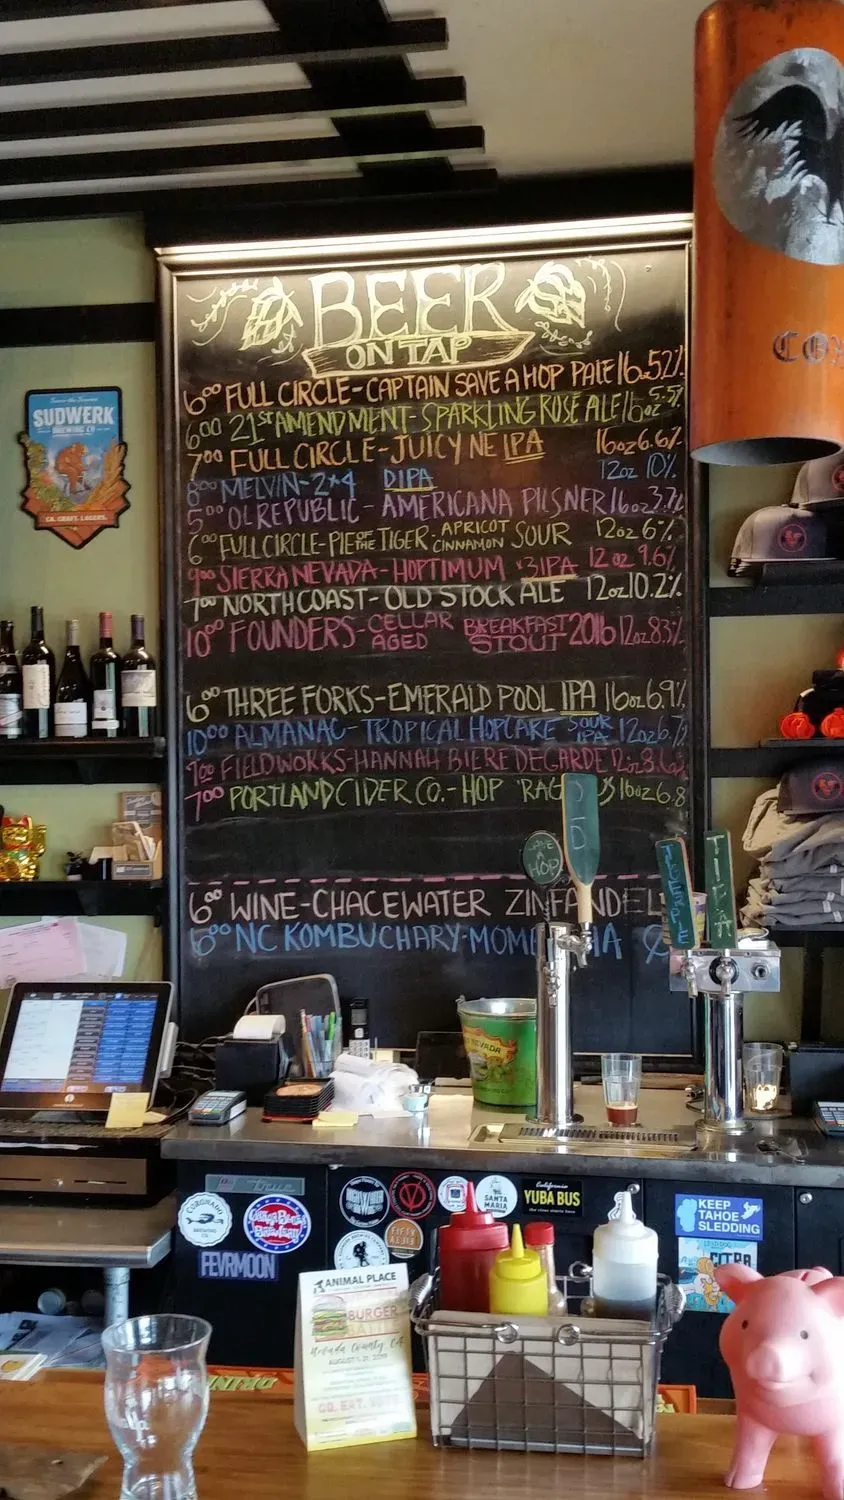 BEER
ON TAP
6⁰⁰ FULL CIRCLE-CAPTAIN SAVE A HOP PALE 16oz 5.2%
6⁰⁰ 21ST AMENDMENT-SPARKLING ROSÉ ALE 16oz 5.5%
7⁰⁰ FULL CIRCLE-JUICY NE IPA 16oz 6.6%
8⁰⁰ MELVIN-2*4 DIPA 12oz 10%
5⁰⁰ OL REPUBLIC-AMERICANA PILSNER 16oz 3.7%
6⁰⁰ FULL CIRCLE-PIE OF THE TIGER-APRICOT CINNAMON SOUR 12oz 6%
9⁰⁰ SIERRA NEVADA-HOPTIMUM 3IPA 12oz 9.6%
7⁰⁰ NORTH COAST-OLD STOCK ALE 12oz 10.2%
10⁰⁰ FOUNDERS-CELLAR AGED BREAKFAST STOUT 2016 12oz 8.3%
6⁰⁰ THREE FORKS-EMERALD POOL IPA 16oz 6.9%
10⁰⁰ ALMANAC-TROPICAL HOPCAKE SOUR IPA 12oz 6.7%
7⁰⁰ FIELDWORKS-HANNAH BIERE DE GARDE 12oz 8.6%
7⁰⁰ PORTLAND CIDER CO.-HOP 'RAG 16oz 6.8
6⁰⁰ WINE-CHACEWATER ZINFANDEL
6⁰⁰ NC KOMBUCHARY-MOM
SUDWERK
BREWING CO
CA. CRAFT. LAGERS.
COX
HOP
TIPA
NEVADA
True
CORONADO
FEVRMOON
FIFTY
SANTA
MARIA
California
YUBA BUS
KEEP
TAHOE
SLEDDING
CITRA
ANIMAL PLACE
BURGER
BATTLE
Nevada County, CA
AUGUST 1-31, 2019
GO. EAT. VOTE